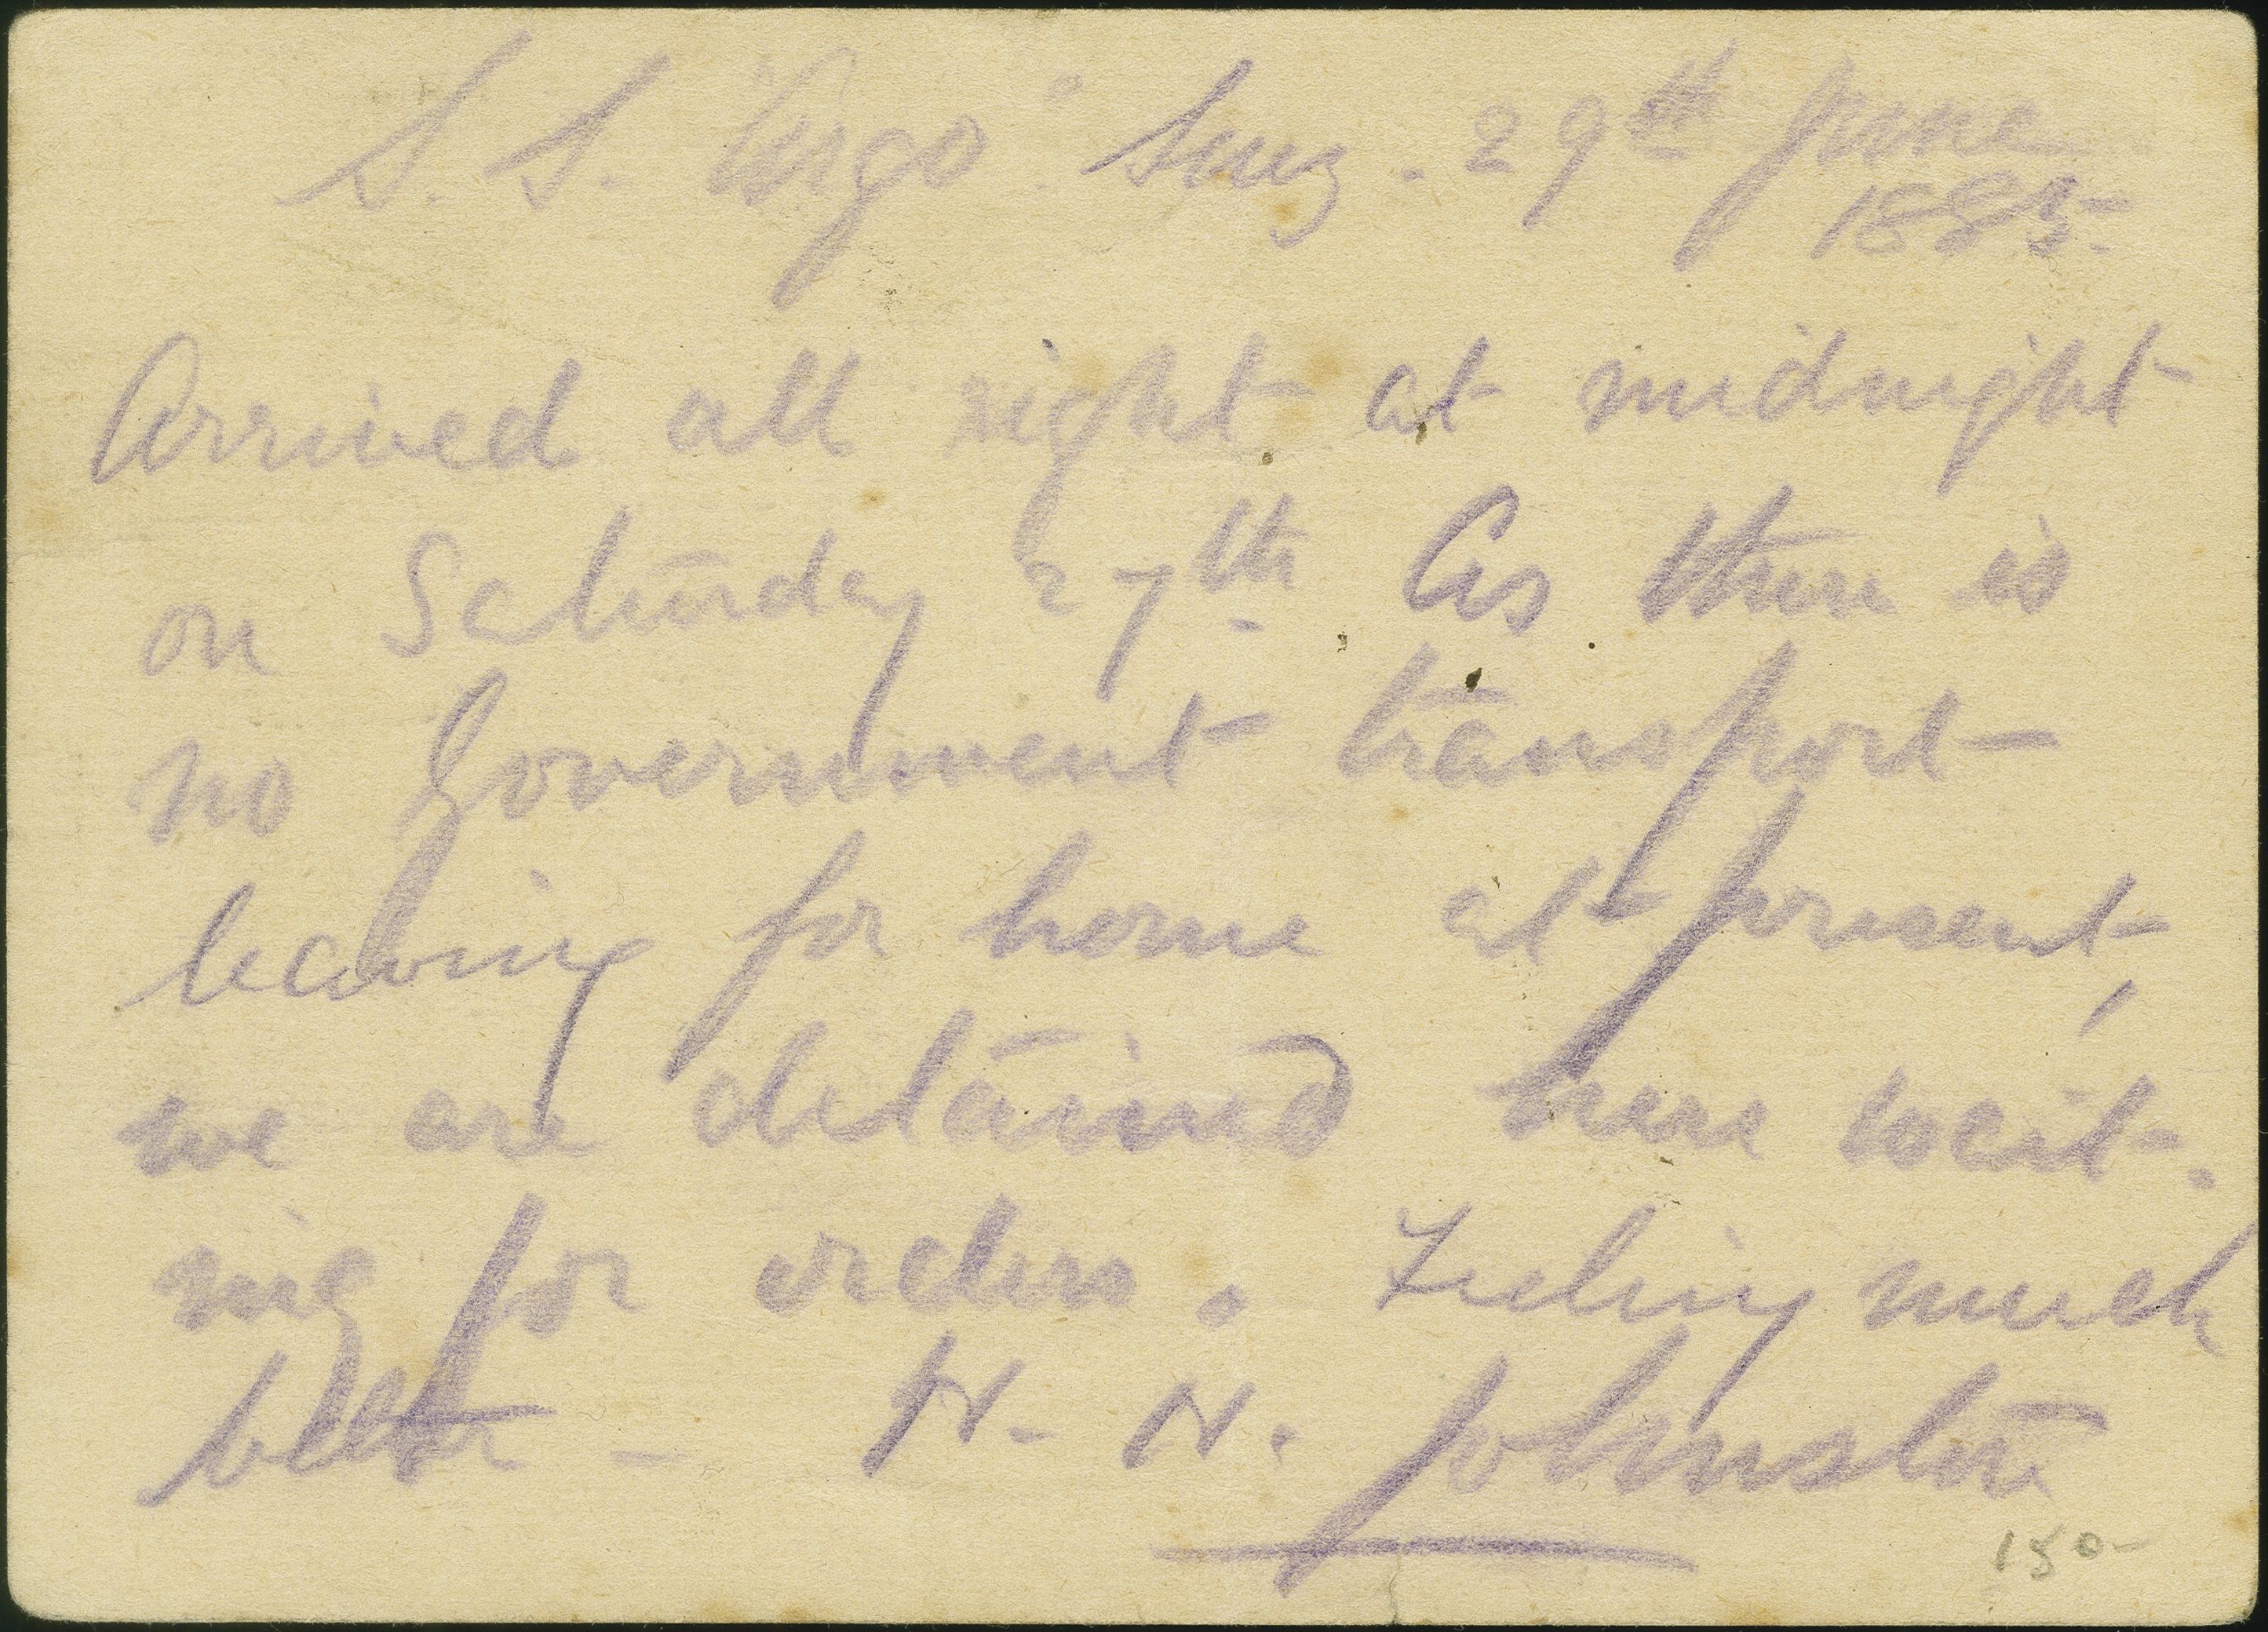 S. S. "Argo". Suez. 29th June
1885
Arrived all right at midnight
on Saturday 27th As there is
no Government transport
leaving for home at present,
we are detained here wait-
ing for orders. Feeling much
better - H. H. Johnston
150-